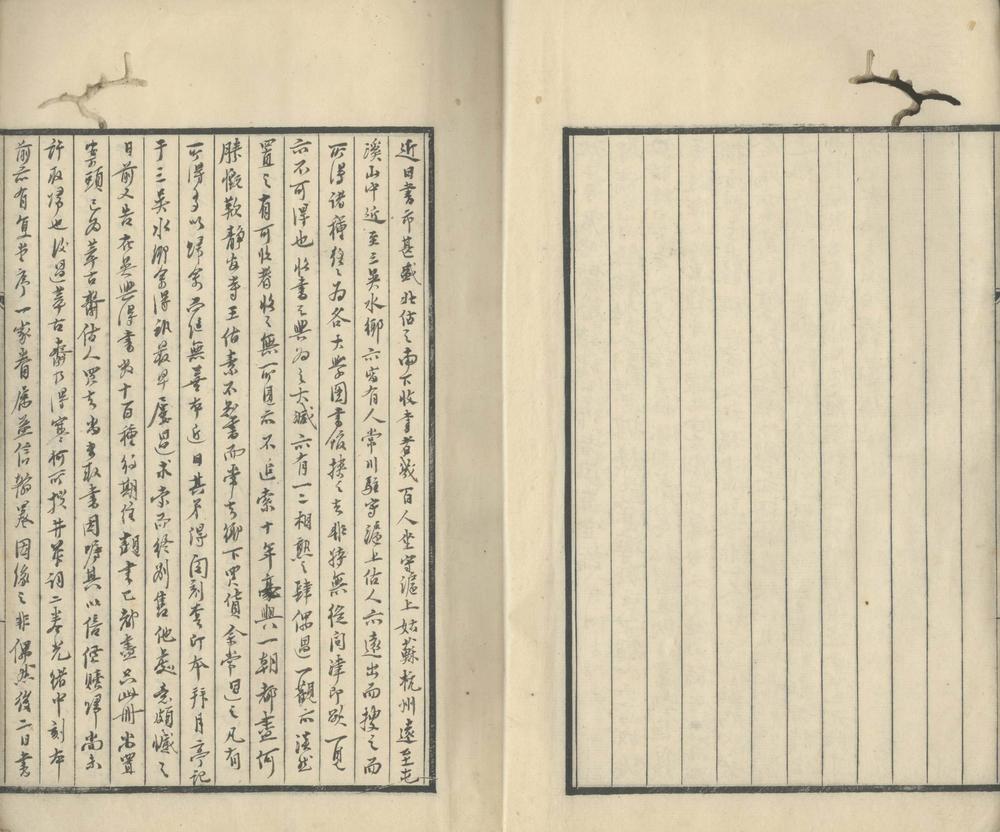 近日書市甚盛北估之南下收書者幾百人坐守滬上姑蘇杭州遠至屯
溪山中近至三吳水鄉亦皆有人常川駐守滬上估人亦遠出而搜之而
所得諸種往之為各大學圖書館挾之去非特無從問津即欲一見
亦不可得也收書之興為之大減亦有一二相熟之肆偶過一觀亦淡然
置之有可收者收之無所見亦不追索十年豪興一朝都盡何
勝慨歎靜安寺王估素不制書而常去鄉下買貨余常過之凡有
所得多以歸余亦絕無善本近日其弟得閔刻套印本拜月亭記
于三吳水鄉余得訊最早屢過求索而終別售他處意頗憾之
日前又告在吳興得書數十百種約期往觀書已都盡只此冊尚置
案頭已為萃古齋估人買去尚未取書因囑其以倍值贖歸尚未
許取歸也後過萃古齋乃得寒柯所撰井眉詞二卷光緒中刻本
前亦有復堂序一家眷屬並信翰墨因緣之非偶然後二日書